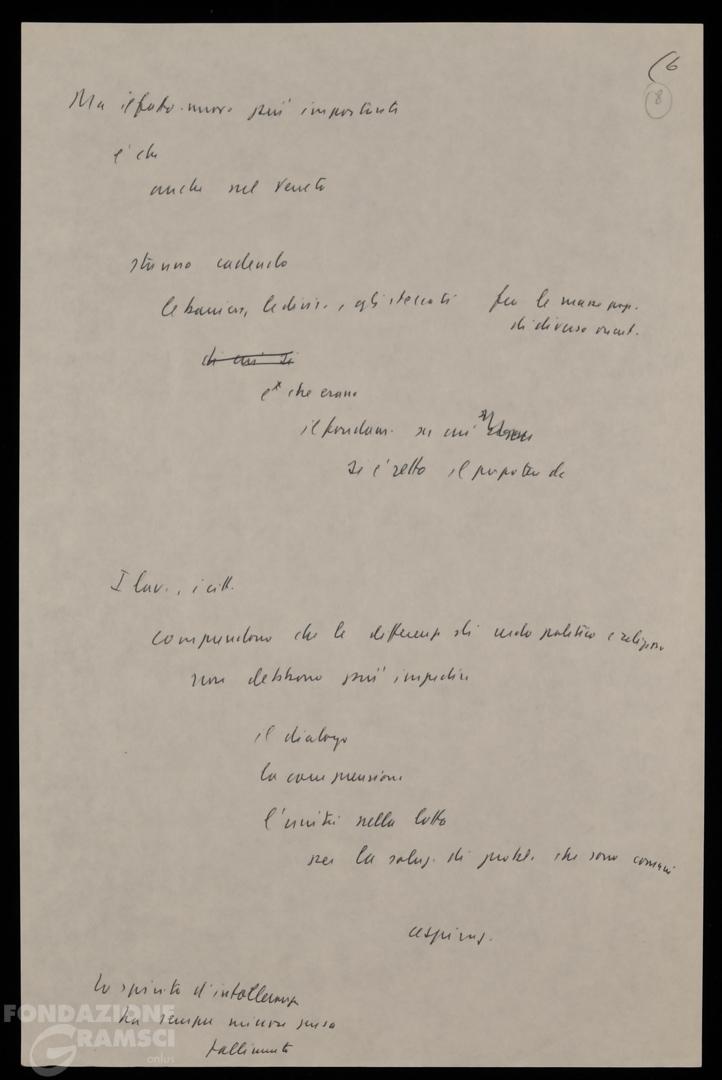 6
8
Ma il fatto nuovo più importante
è che
anche nel Veneto
stanno cadendo
le barriere, le divis., gli steccati fra le masse pop.
di diverso orient.
di cui si
e che erano
il fondam. su cui
si è retto il prepotere dc
I lav., i citt.
comprendono che le differenze di credo politico e religioso
non debbono più impedire
il dialogo
la comprensione
l'unità nella lotta
per la soluz. di probl. che sono comuni
aspiraz.
Lo spirito d'intolleranza
ha sempre minore presa
fallimento
FONDAZIONE
GRAMSCI
onlus